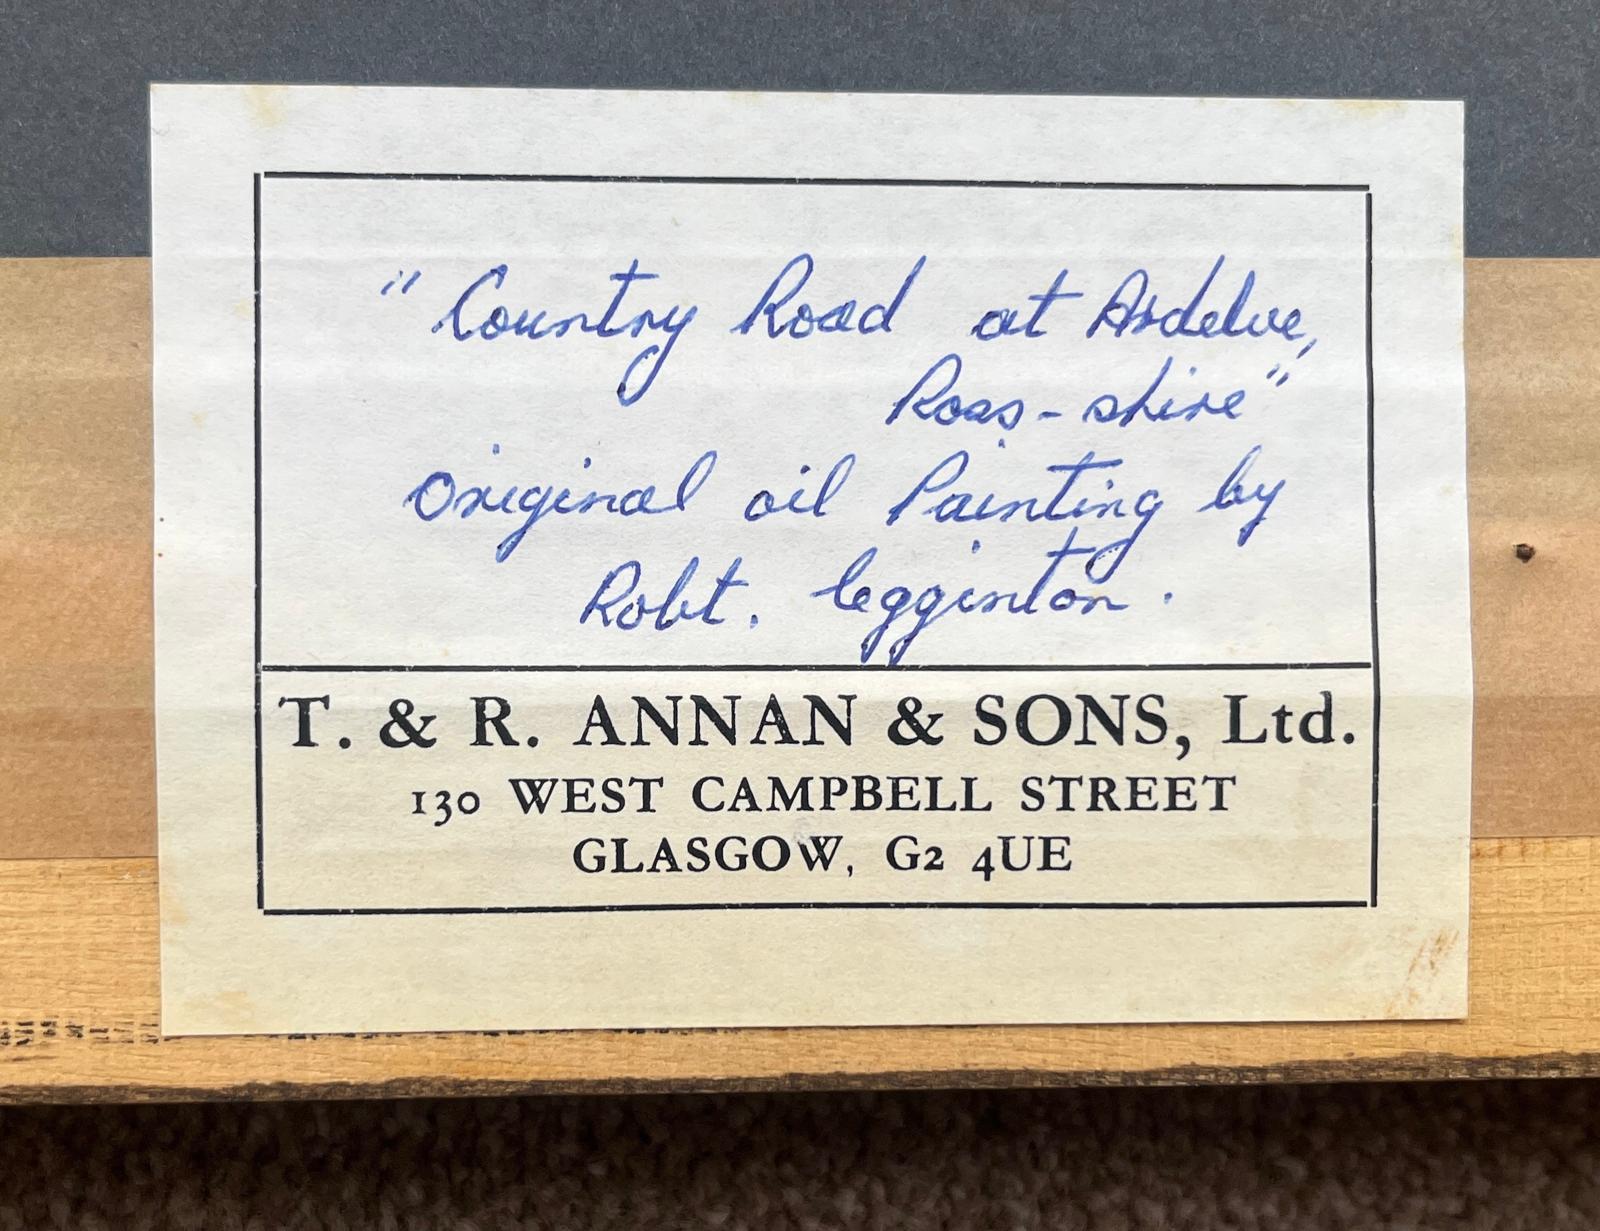 "Country Road at Ardelve,
Ross-shire"
Original oil Painting by
Robt. Egginton.
T. & R. ANNAN & SONS, Ltd.
130 WEST CAMPBELL STREET
GLASGOW, G2 4UE